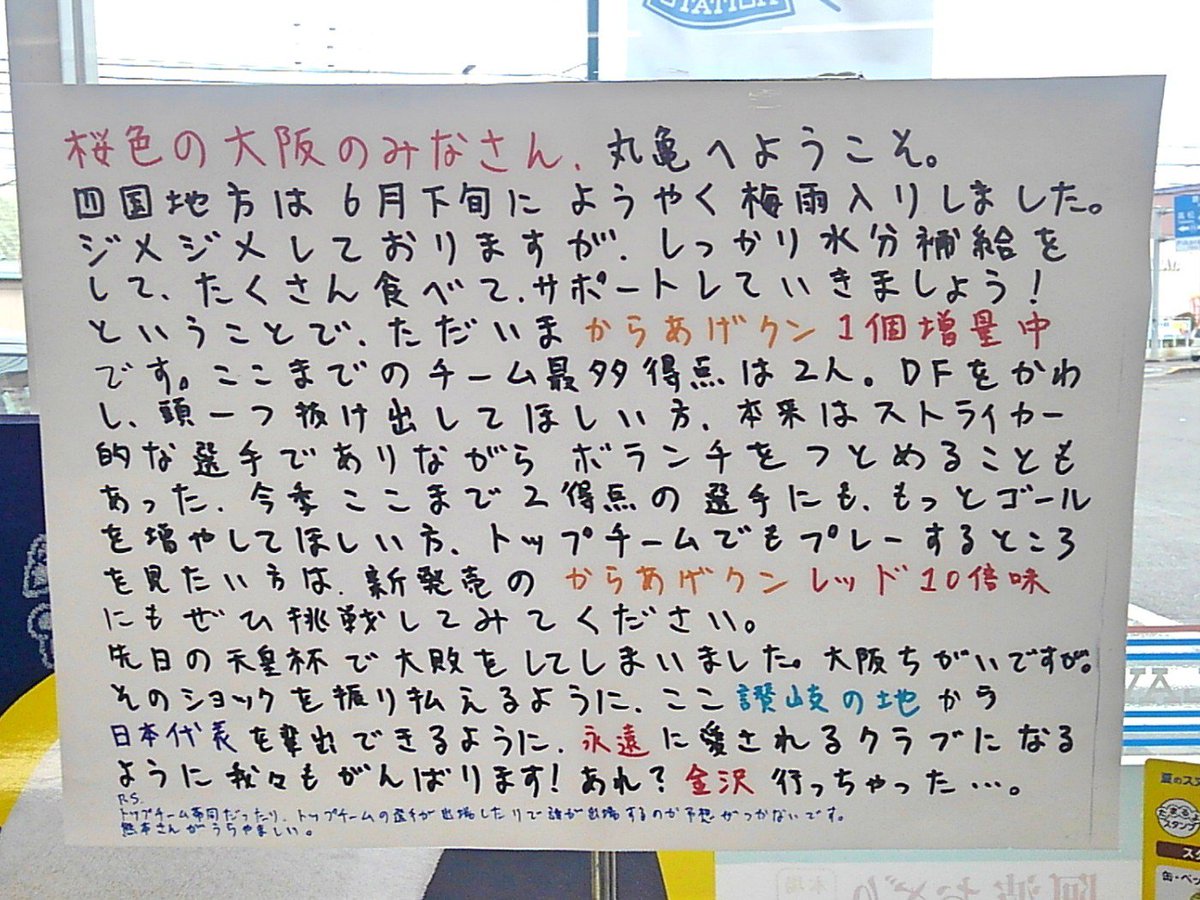 STATION
桜色の大阪のみなさん、丸亀へようこそ。
四国地方は6月下旬にようやく梅雨入りしました。
ジメジメしておりますが、しっかり水分補給を
して、たくさん食べて、サポートしていきましょう！
ということで、ただいまからあげクン1個増量中
です。ここまでのチーム最多得点は2人。DFをかわ
し、頭一つ抜け出してほしい方、本来はストライカー
的な選手でありながらボランチをつとめることも
あった、今季ここまで2得点の選手にも、もっとゴール
を増やしてほしい方、トップチームでもプレーするところ
を見たい方は、新発売のからあげクンレッド10倍味
にもぜひ挑戦してみてください。
先日の天皇杯で大敗をしてしまいました。大阪ちがいですが。
そのショックを振り払えるように、ここ讃岐の地から
日本代表を輩出できるように、永遠に愛されるクラブになる
ように我々もがんばります！あれ？金沢行っちゃった…。
P.S.
トップチーム帯同だったり、トップチームの選手が出場したりで誰が出場するのか予想がつかないです。
熊本さんがうらやましい。
夏のス
スタンプ
缶・ペッ